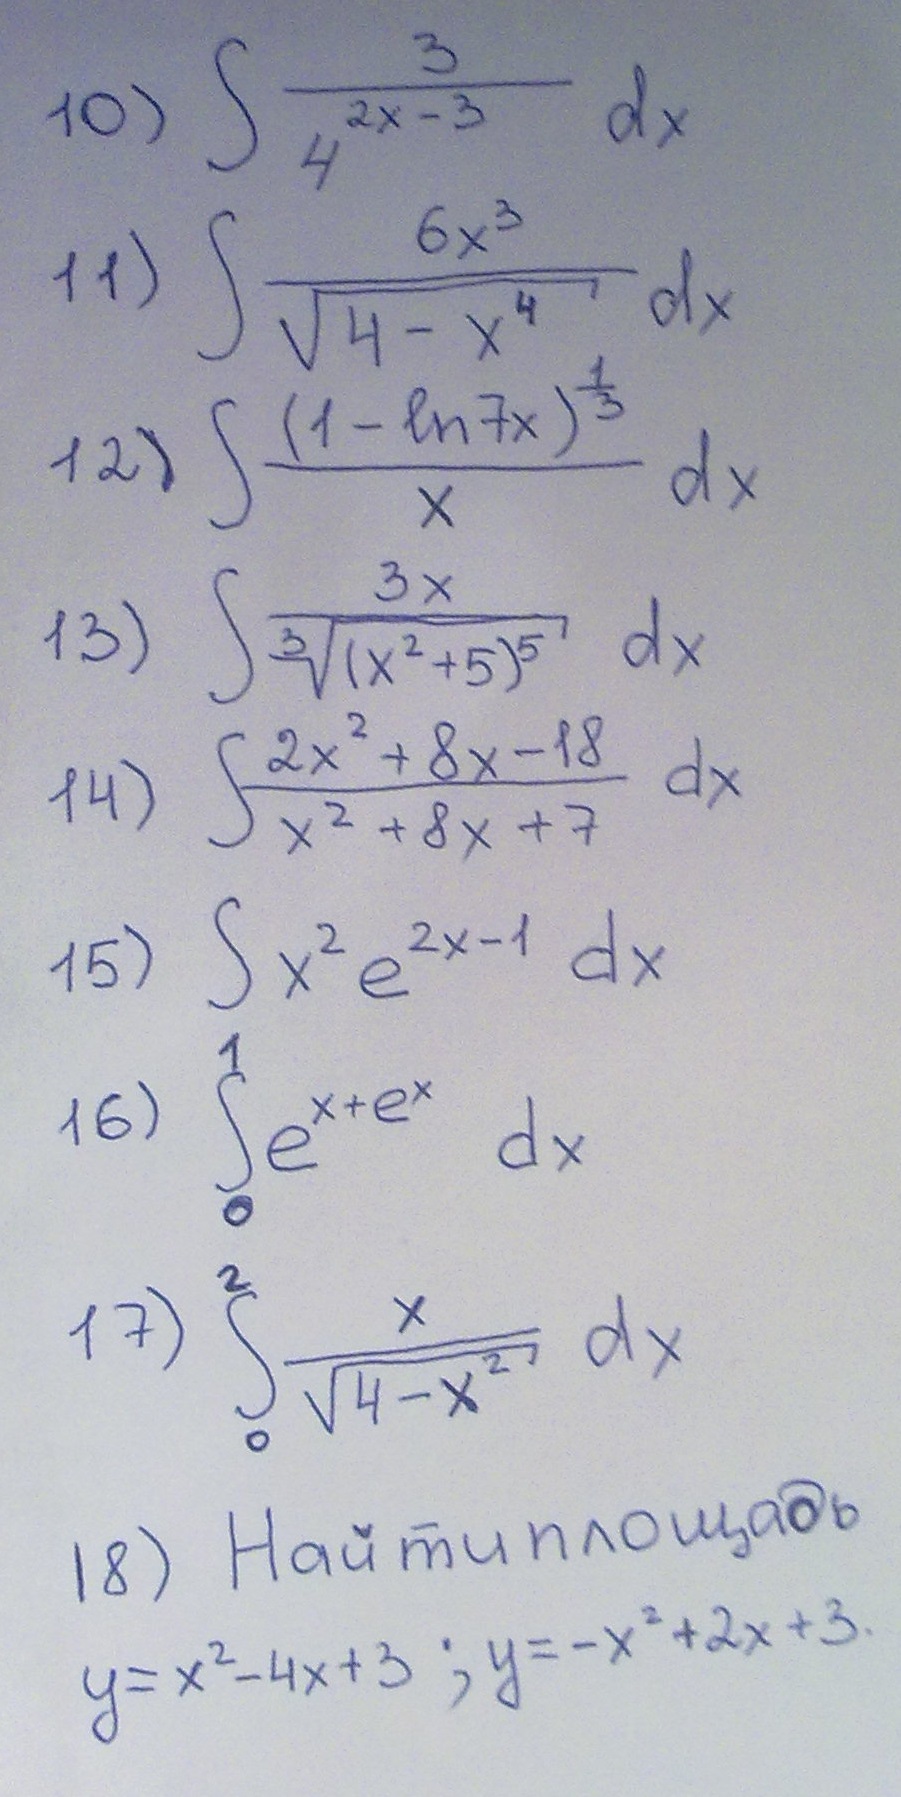 10) ∫ 3 / 4^(2x-3) dx
11) ∫ 6x³ / √(4-x⁴) dx
12) ∫ (1-ln7x)^(1/3) / x dx
13) ∫ 3x / ∛((x²+5)⁵) dx
14) ∫ (2x²+8x-18) / (x²+8x+7) dx
15) ∫ x² e^(2x-1) dx
16) ∫₀¹ e^(x+e^x) dx
17) ∫₀² x / √(4-x²) dx
18) Найти площадь
y=x²-4x+3 ; y=-x²+2x+3.